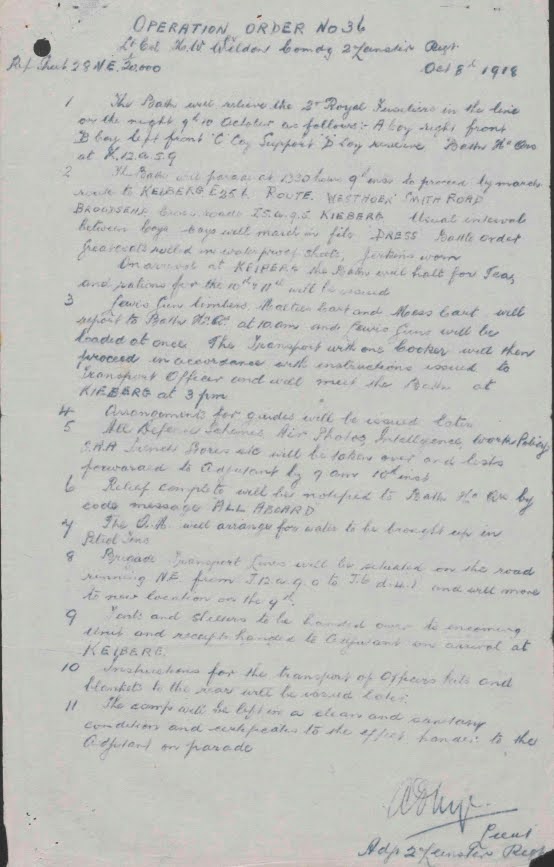 OPERATION ORDER No 36
Lt Col H.W. Weldon Comdg 2 Leinster Regt
Ref Sheet 28 N.E. 20,000 Oct 8th 1918
1 The Battn will relieve the 2nd Royal Fusiliers in the line
on the night 9th 10 October as follows:- A Coy right front
B Coy left front "C" Coy Support "D" Coy reserve Battn Hd Qrs
at K.12.a.5.9
2 The Battn will parade at 1330 hours 9th inst to proceed by march
route to KEIBERG E25 ROUTE. WESTHOEK SMITH ROAD
BROODSEINDE Cross roads KIEBERG Usual intervals
between Coys Coys will march in file DRESS Battle order
Greatcoats rolled in waterproof sheets, Jerkins worn
On arrival at KEIBERG the Battn will halt for Teas,
and rations for the 10th & 11th will be issued
3 Lewis Gun limbers, Maltese Cart and Mess Cart will
report to Battn Hd Qr at 10 am and Lewis Guns will be
loaded at once. The Transport with one Cooker will then
proceed in accordance with instructions issued to
Transport Officer and will meet the Battn at
KIEBERG at 3 pm
4 Arrangements for guides will be issued later
5 All Defence Schemes Air Photos, Intelligence, Works Policy
S.A.A Trench Stores etc will be taken over and lists
forwarded to Adjutant by 9 am 10th inst
6 Relief complete will be notified to Battn Hd Qrs by
code message ALL ABOARD
7 The Q.M. will arrange for water to be brought up in
Petrol Tins
8 Brigade Transport Lines will be situated on the road
running NE from J.12.a.9.0 to J.6.d.4.1 and will move
to new location on the 9th.
9 Tents and shelters to be handed over to incoming
Unit and receipts handed to Adjutant on arrival at
KEIBERG.
10 Instructions for the transport of Officers kits and
blankets to the rear will be issued later.
11 The camp will be left in a clean and sanitary
condition and certificates to the effect handed to the
Adjutant on parade
Lieut
Adjt 2 Leinster Regt